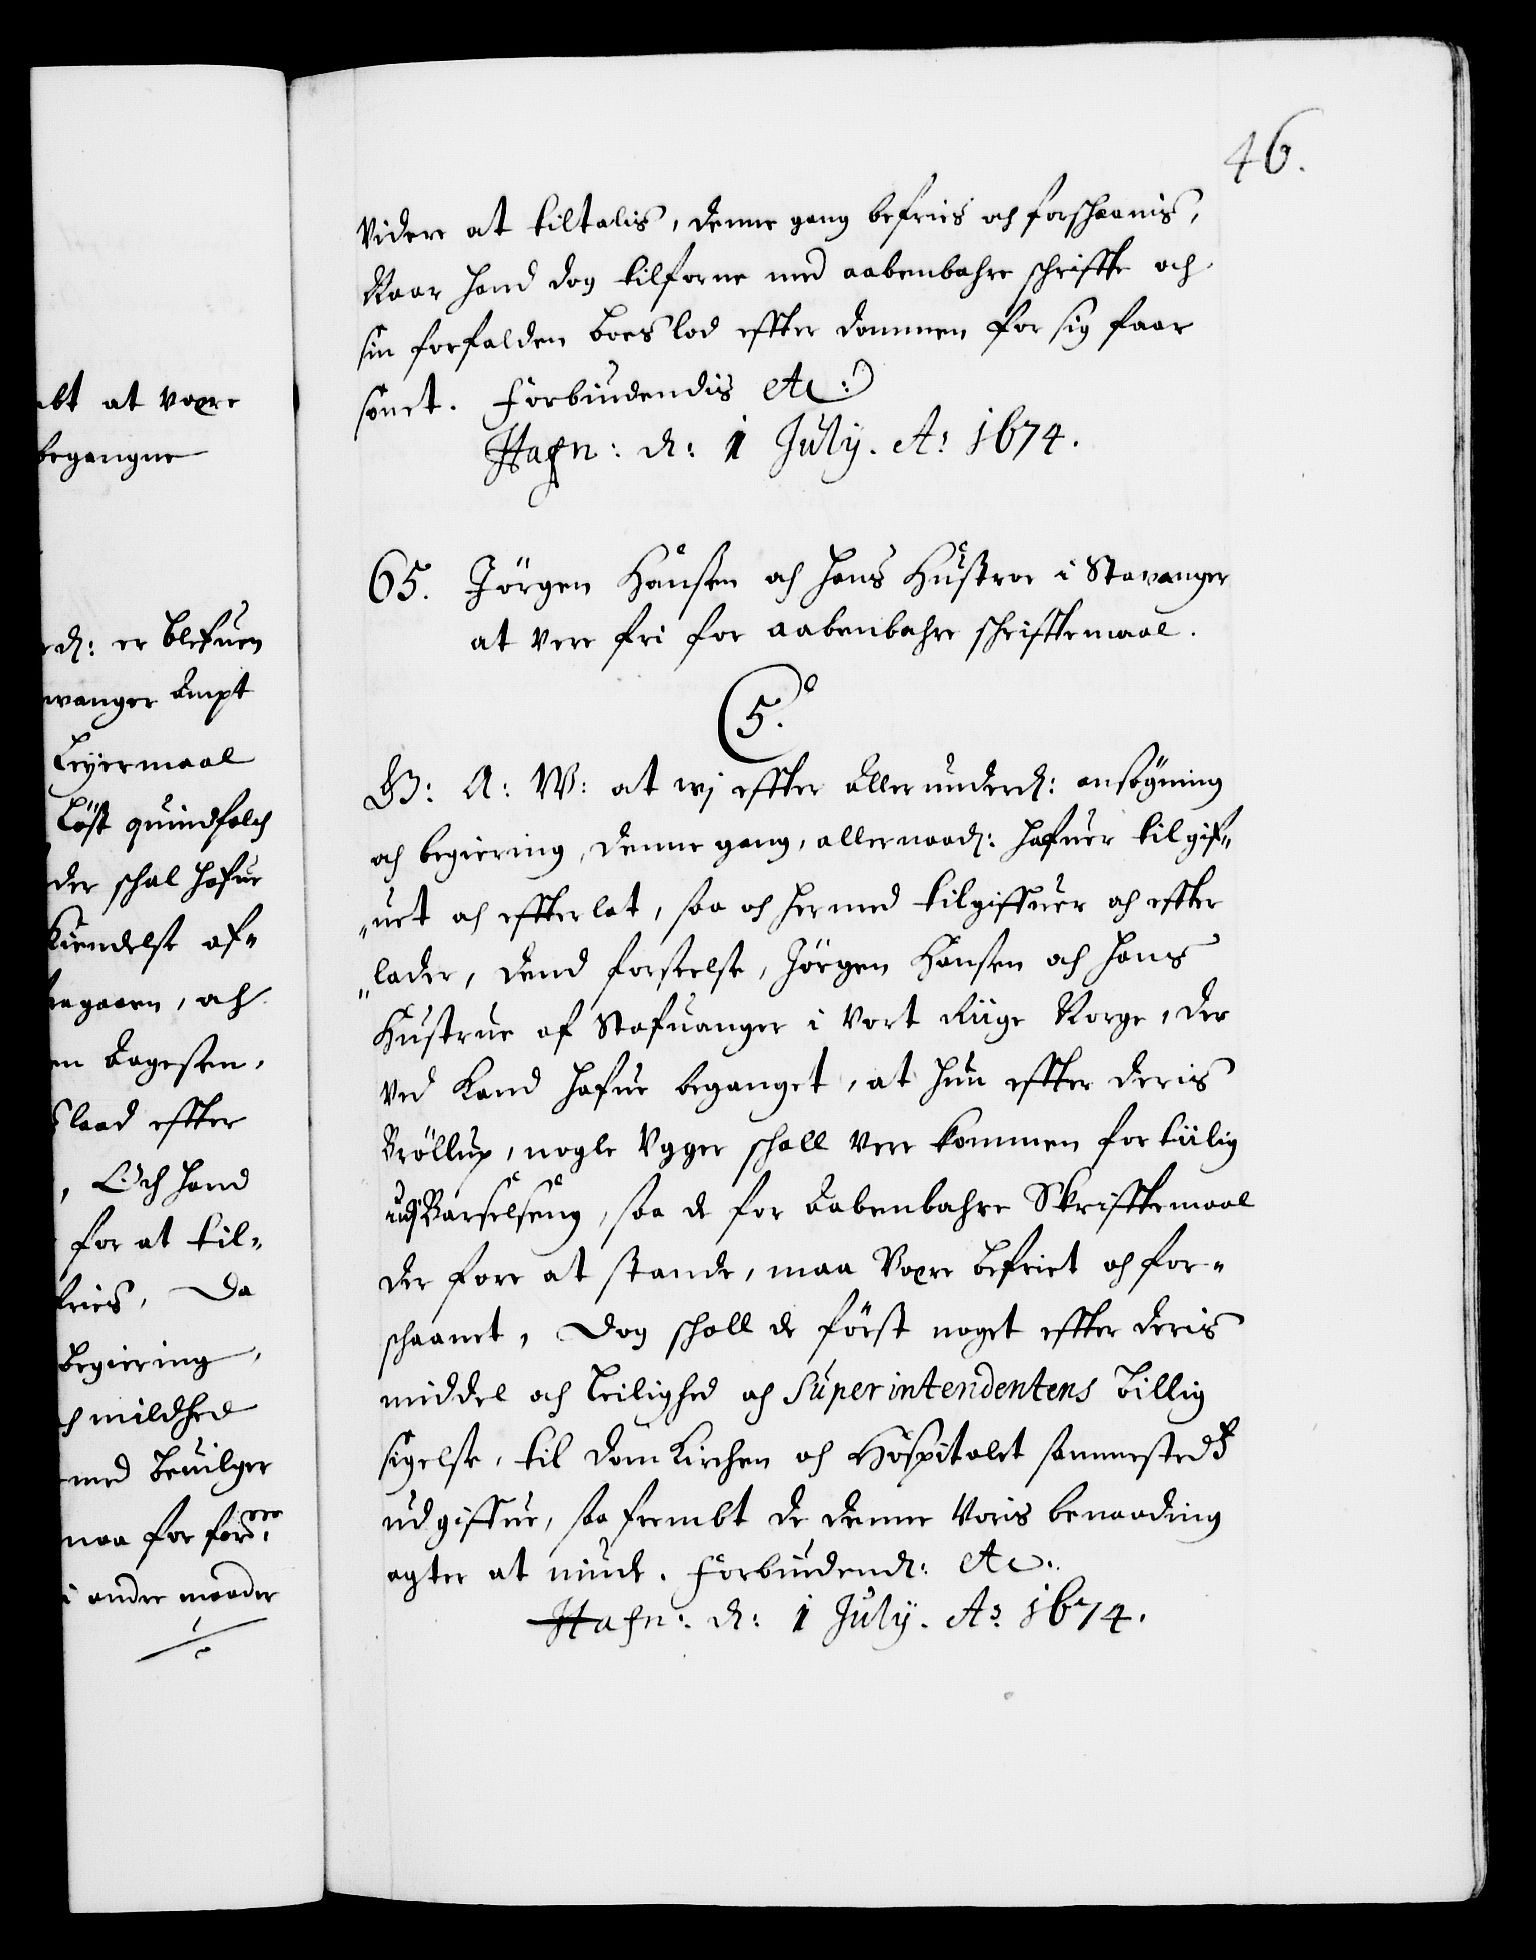 46.
videre at tiltalis, denne gang befries och forschaanis,
Naar hand dog tilforne med aabenbahre schriffte och
sin forfalden boeslod effter dommen for sig faar
sonet. Forbiudendis etc:
Hafn: d: 1 July. Aº 1674.
65. Jörgen Hansen och hans Hustroe i Stavanger
at vere fri for aabenbahre schrifftemaal.
C 5.
G: A: W: at wj effter allerunderd: ansögning
och begiering, denne gang, allernaad: hafuer tilgif„
„uet och effterlat, saa och hermed tilgiffuer och effter
„lader, dend forseelse, Jörgen Hansen och hans
Hustrue af Stafuanger i Vort Riige Norge, der
ved Land hafue beganget, at hun effter deris
Bröllup, nogle Ugger schall vere kommen for tiilig
udj Barselseng, saa de for Aabenbahre Skrifftemaal
der fore at stande, maa Være befriet och for„
schaanet, Dog schall de först noget effter deris
middel och Leilighed och Superintendentens billig
sigelse, til Dom Kirchen och Hospitalet sammesteds
udgiffue, saa frembt de denne Voris benaading
agter at niude. Forbiudend: etc.
Hafn: d: 1 July. Aº 1674.
abt at være
begangne
d: er blefuen
wanger Ampt
Leyermaal
Löst quindfolch
der schal hafue
Kiendelse af„
och
en Aagesen,
slaad effter
, Och hand
for at til„
fries, Da
begiering,
och mildhed
med bevilger
maa for förö:
i andre maader